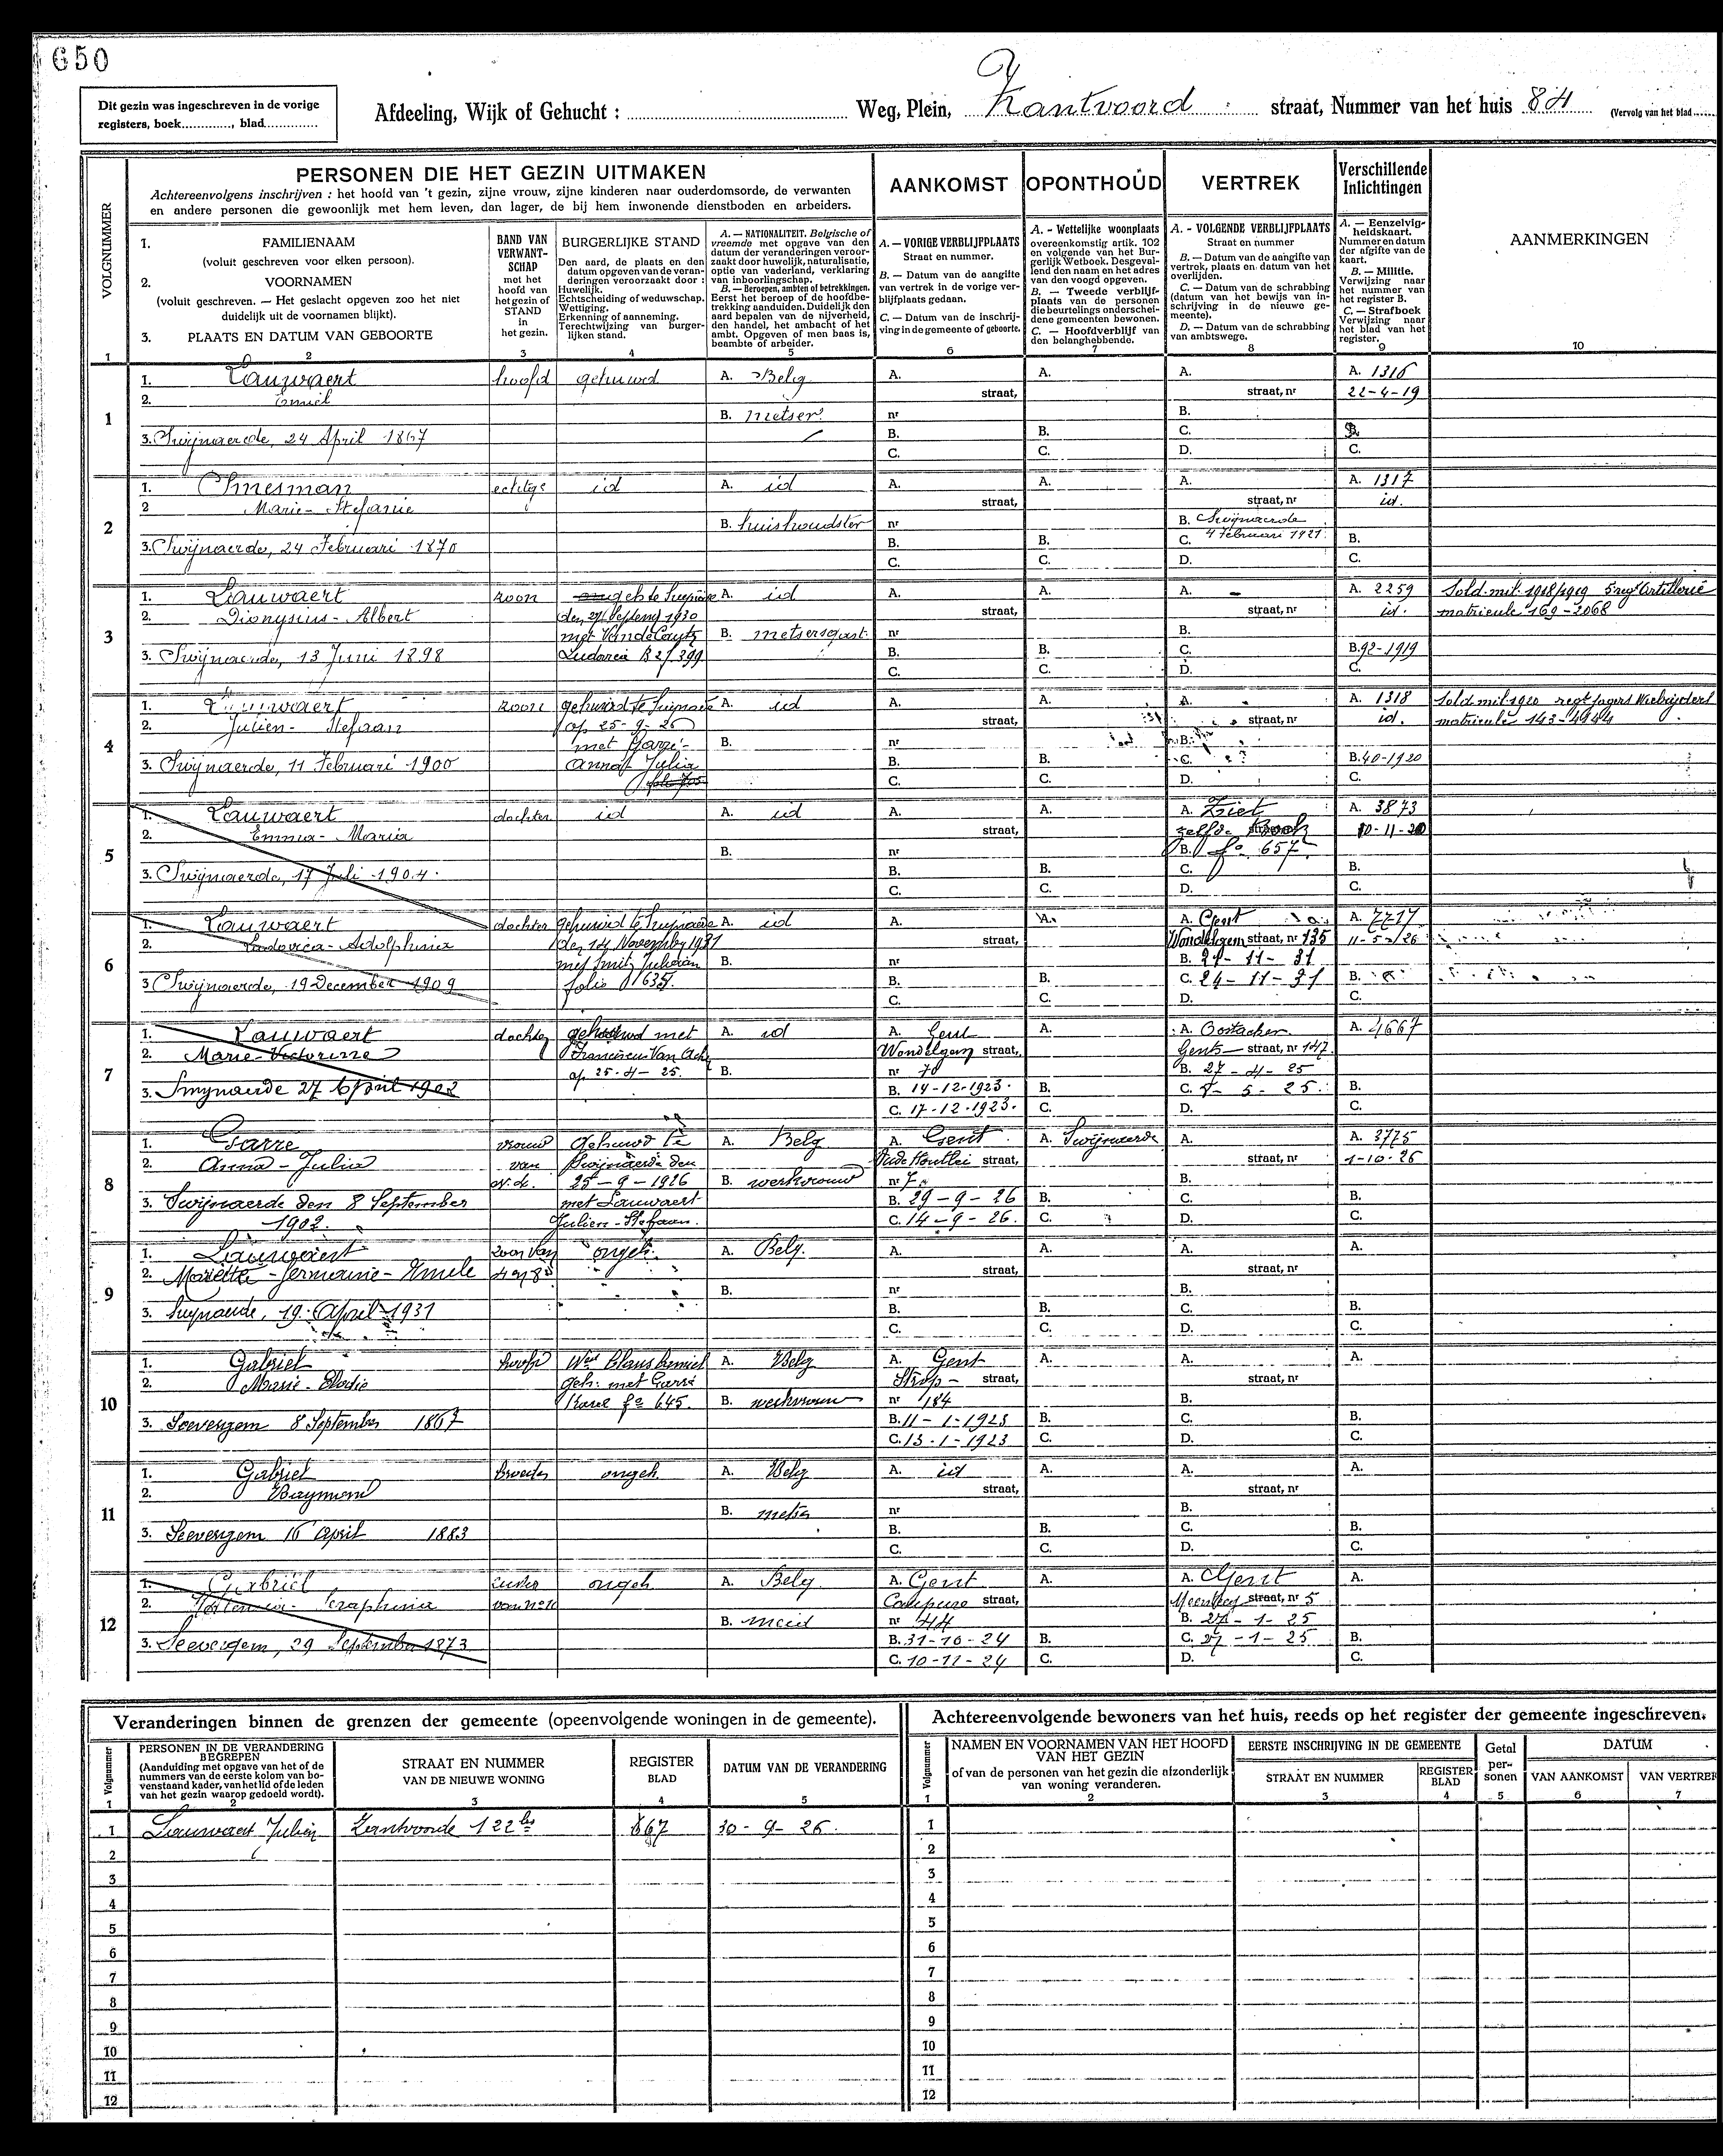 650
Dit gezin was ingeschreven in de vorige
registers, boek............., blad..............
Afdeeling, Wijk of Gehucht : Weg, Plein, Zantvoord straat, Nummer van het huis 84 (Vervolg van het blad
PERSONEN DIE HET GEZIN UITMAKEN
Achtereenvolgens inschrijven : het hoofd van 't gezin, zijne vrouw, zijne kinderen naar ouderdomsorde, de verwanten
en andere personen die gewoonlijk met hem leven, dan lager, de bij hem inwonende dienstboden en arbeiders.
AANKOMST OPONTHOUD VERTREK
Verschillende
Inlichtingen
AANMERKINGEN
VOLGNUMMER
1. FAMILIENAAM
(voluit geschreven voor elken persoon).
2. VOORNAMEN
(voluit geschreven. — Het geslacht opgeven zoo het niet
duidelijk uit de voornamen blijkt).
3. PLAATS EN DATUM VAN GEBOORTE
BAND VAN
VERWANT-
SCHAP
met het
hoofd van
het gezin of
STAND
in
het gezin.
BURGERLIJKE STAND
Den aard, de plaats en den
datum opgeven van de veran-
deringen veroorzaakt door :
Huwelijk.
Echtscheiding of weduwschap.
Wettiging.
Erkenning of aanneming.
Terechtwijzing van burger-
lijken stand.
A. — NATIONALITEIT. Belgische of
vreemde met opgave van den
datum der veranderingen veroor-
zaakt door huwelijk, naturalisatie,
optie van vaderland, verklaring
van inboorlingschap.
B. — Beroepen, ambten of betrekkingen.
Eerst het beroep of de hoofdbe-
trekking aanduiden. Duidelijk den
aard bepalen van de nijverheid,
den handel, het ambacht of het
ambt. Opgeven of men baas is,
beambte of arbeider.
A. — VORIGE VERBLIJFPLAATS
Straat en nummer.
B. — Datum van de aangifte
van vertrek in de vorige ver-
blijfplaats gedaan.
C. — Datum van de inschrij-
ving in de gemeente of geboorte.
A. - Wettelijke woonplaats
overeenkomstig artik. 102
en volgende van het Bur-
gerlijk Wetboek. Desgeval-
lend den naam en het adres
van den voogd opgeven.
B. — Tweede verblijf-
plaats van de personen
die beurtelings onderschei-
dene gemeenten bewonen.
C. — Hoofdverblijf van
den belanghebbende.
A. - VOLGENDE VERBLIJFPLAATS
Straat en nummer
B. — Datum van de aangifte van
vertrek, plaats en datum van het
overlijden.
C. — Datum van de schrabbing
(datum van het bewijs van in-
schrijving in de nieuwe ge-
meente).
D. — Datum van de schrabbing
van ambtswege.
A. — Eenzelvig-
heidskaart.
Nummer en datum
der afgifte van de
kaart.
B. — Militie.
Verwijzing naar
het nummer van
het register B.
C. — Strafboek
Verwijzing naar
het blad van het
register.
1 2 3 4 5 6 7 8 9 10
1
1. Lauwaert hoofd gehuwd A. Belg A. A. A. A. 1316
2. Emiel straat, straat, nr 22-4-19
B. metser nr B.
3. Swijnaerde, 24 April 1867 B. B. C. B.
C. C. D. C.
2
1. Smesman echtge id A. id A. A. A. A. 1317
2 Marie-Stefanie straat, straat, nr id.
B. huishoudster nr B. Swijnaerde
3. Swijnaerde, 24 Februari 1870 B. B. C. 4 Februari 1921. B.
C. C. D. C.
3
1. Lauwaert zoon A. id A. A. A. A. 2259 Sold. mil. 1918/1919
2. Dionysius-Albert straat, straat, nr id. matricule 169-2068
met B. metsersgast nr B.
3. Swijnaerde, 13 Juni 1898 B. B. C. B. 92-1919
C. C. D. C.
4
1. Lauwaert zoon A. id A. A. A. A. 1318 Sold. mil. 1920
2. Julien-Stefaan op 25-9-26 straat, straat, nr id. matricule 143-4944
met Garré B. nr B.
3. Swijnaerde, 11 Februari 1900 Anna Julia B. B. C. B. 40-1920
C. C. D. C.
5
1. Lauwaert dochter id A. id A. A. A. Ziet A. 3873
2. Emma-Maria straat, zelfde Boek 10-11-20
B. nr B. fo 657
3. Swijnaerde, 17 Juli 1904. B. B. C. B.
C. C. D. C.
6
1. Lauwaert dochter A. id A. A. A. Gent A. 7217
2. Ludovica-Adolphina straat, Wondelgem straat, nr 135
B. nr B. 21-11-31
3 Swijnaerde, 19 December 1909 folio B. B. C. 24-11-31 B.
C. C. D. C.
7
1. Lauwaert dochter gehuwd met A. id A. Gent A. A. Oostacker A. 4667
2. Marie-Victorine Franciscus Van Wondelgem straat, Gent straat, nr 147
op 25-4-25. B. nr 70 B. 27-4-25
3. Swijnaerde 27 April 1902 B. 14-12-1923. B. C. 8-5-25. B.
C. 17-12-1923. C. D. C.
8
1. Garre vrouw Gehuwd te A. Belg A. Gent A. Swijnaerde A. A. 3775
2. Anna-Julia van Swijnaerde den Oude Houtlei straat, straat, nr 1-10-26
25-9-1926 B. werkvrouw nr 7 B.
3. Swijnaerde den 8 September met Lauwaert B. 29-9-26 B. C. B.
1902. Julien-Stefaan. C. 14-9-26. C. D. C.
9
1. Lauwaert zoon van ongeh. A. Belg. A. A. A. A.
2. Mariette-Germaine-Emele straat, straat, nr
B. nr B.
3. Swynaerde, 19 April 1931 B. B. C. B.
C. C. D. C.
10
1. Gabriel hoofd A. Belg A. Gent A. A. A.
2. Marie-Elodie geh. met Garré Strop- straat, straat, nr
Karel fo 645. B. werkvrouw nr 184 B.
3. Seevergem 8 September 1867 B. 11-1-1923 B. C. B.
C. 13-1-1923 C. D. C.
11
1. Gabriel broeder ongeh. A. Belg A. id A. A. A.
2. Raymond straat, straat, nr
B. metser nr B.
3. Seevergem 16 April 1883 B. B. C. B.
C. C. D. C.
12
1. Gabriël zuster ongeh. A. Belg A. Gent A. A. Gent A.
2. Seraphina van No 10 straat, straat, nr 5
B. meid nr 44 B. 27-1-25
3. Seevergem, 29 September 1873 B. 31-10-24 B. C. 27-1-25 B.
C. 10-11-24 C. D. C.
Veranderingen binnen de grenzen der gemeente (opeenvolgende woningen in de gemeente).
Volgnummer
PERSONEN IN DE VERANDERING
BEGREPEN
(Aanduiding met opgave van het of de
nummers van de eerste kolom van bo-
venstaand kader, van het lid of de leden
van het gezin waarop gedoeld wordt).
STRAAT EN NUMMER
VAN DE NIEUWE WONING
REGISTER
BLAD
DATUM VAN DE VERANDERING
1 2 3 4 5
1 Lauwaert Julien Zantvoorde 122 bis 667 30-9-26.
2
3
4
5
6
7
8
9
10
11
12
Achtereenvolgende bewoners van het huis, reeds op het register der gemeente ingeschreven.
Volgnummer
NAMEN EN VOORNAMEN VAN HET HOOFD
VAN HET GEZIN
of van de personen van het gezin die afzonderlijk
van woning veranderen.
EERSTE INSCHRIJVING IN DE GEMEENTE
STRAAT EN NUMMER
REGISTER
BLAD
Getal
per-
sonen
DATUM
VAN AANKOMST VAN VERTREK
1 2 3 4 5 6 7
1
2
3
4
5
6
7
8
9
10
11
12